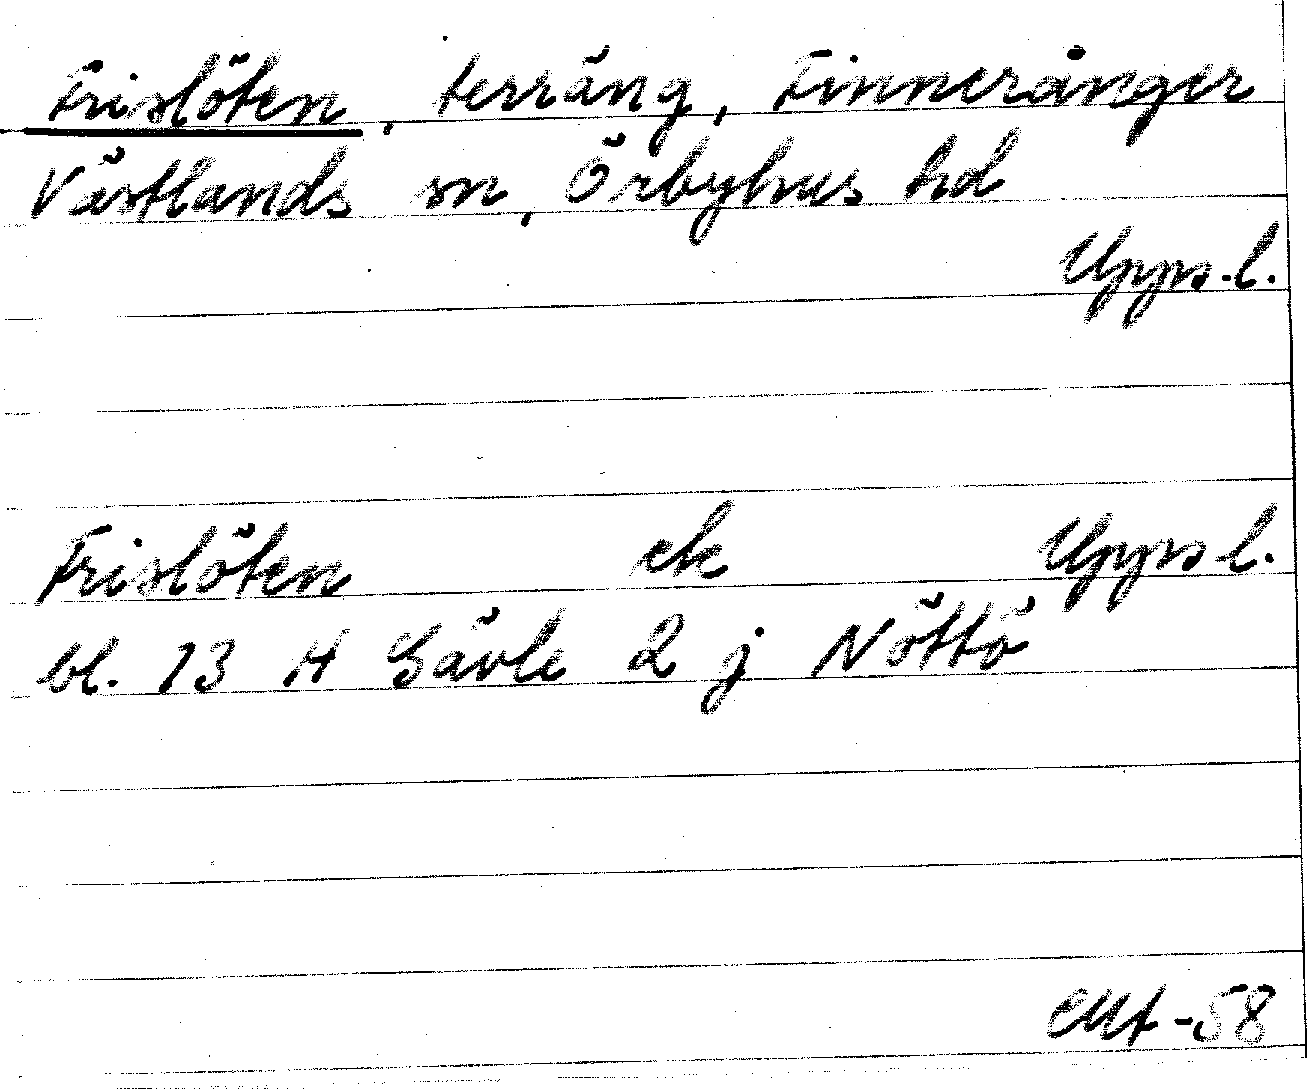 Frislöten, terräng, Finneränger
Västlands sn, Örbyhus hd
Upps.l.
Frislöten ek Upps l.
bl. 13 H Gävle 2 j Nöttö
EMt -58